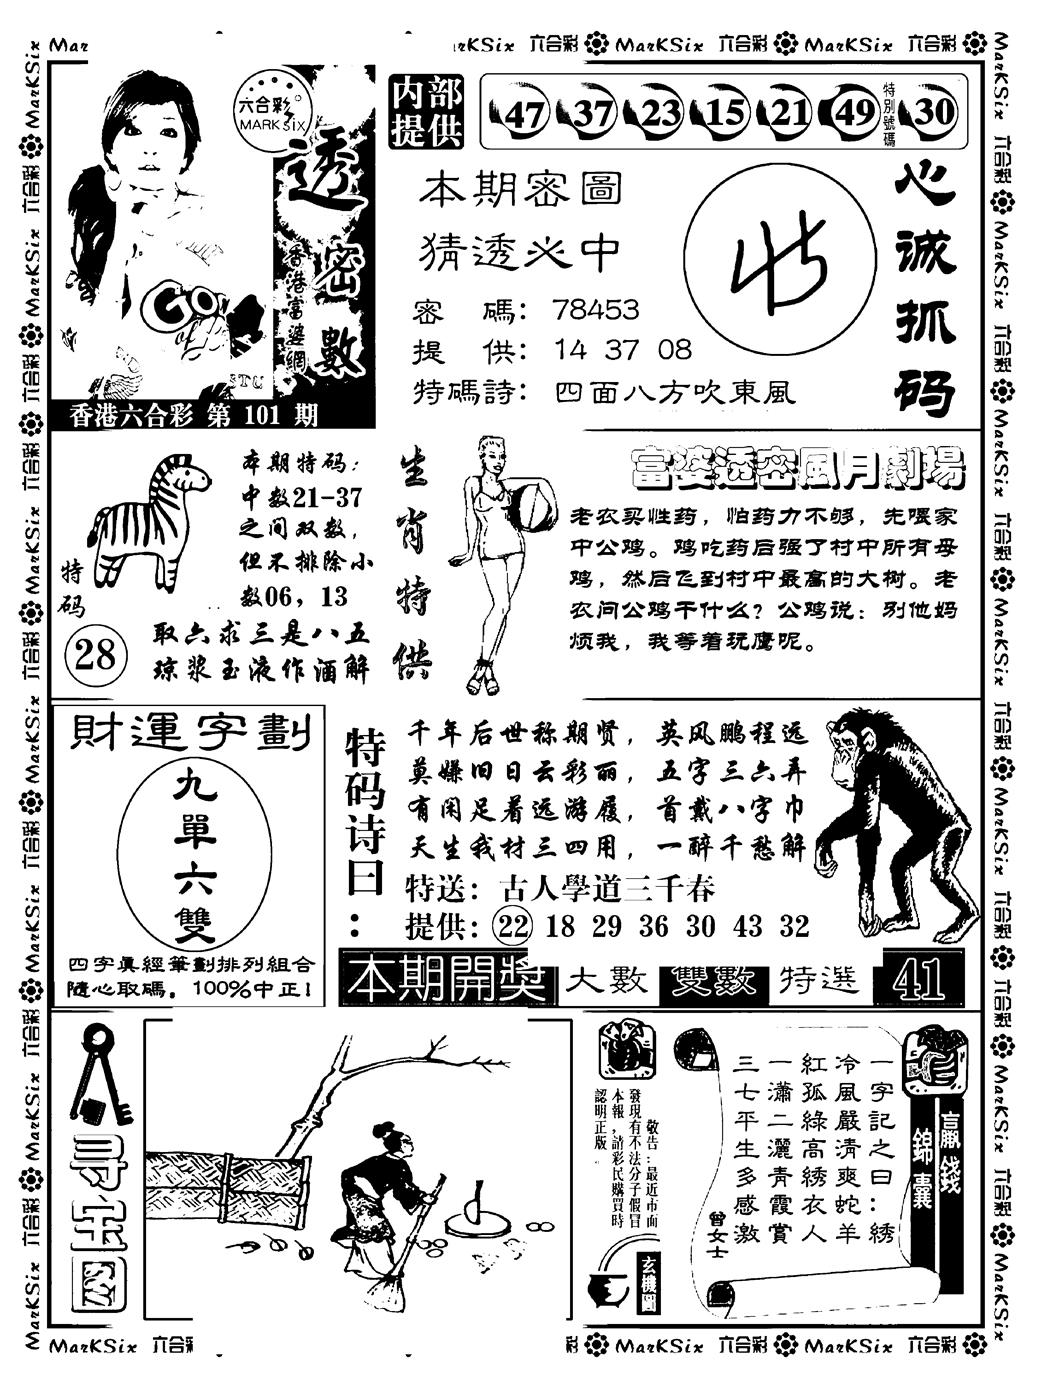 MarKSix 六合彩 MarKSix 六合彩 MarKSix 六合彩
六合彩
MARK SIX
透密數
香港富婆網
香港六合彩 第 101 期
内部
提供
47 37 23 15 21 49 特別號碼 30
本期密圖
猜透必中
密 碼: 78453
提 供: 14 37 08
特碼詩: 四面八方吹東風
心诚抓码
本期特码:
中数21-37
之间双数,
但不排除小
数06,13
特码
28
取六求三是八五
琼浆玉液作酒解
生肖特供
富婆透密風月劇場
老农买性药，怕药力不够，先喂家
中公鸡。鸡吃药后强了村中所有母
鸡，然后飞到村中最高的大树。老
农问公鸡干什么？公鸡说：别他妈
烦我，我等着玩鹰呢。
財運字劃
九單六雙
四字真經筆劃排列組合
隨心取碼，100%中正!
特码诗曰:
千年后世称期贤，英风鹏程远
莫嫌旧日云彩丽，五字三六弄
有闲足着远游履，首戴八字巾
天生我材三四用，一醉千愁解
特送: 古人學道三千春
提供: 22 18 29 36 30 43 32
本期開獎 大數 雙數 特選 41
寻宝图
敬告:最近市面
發現有不法分子假冒
本報，請彩民購買時
認明正版.
玄機圖
贏錢
錦囊
一字記之曰:綉
冷風嚴淸爽蛇羊
紅孤綠高綉衣人
一瀟二灑青霞賞
三七平生多感激
曾女士
MarKSix 六合彩 MarKSix 六合彩 MarKSix 六合彩